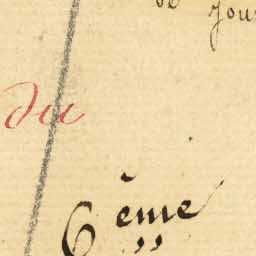 de jou
du
6 ème